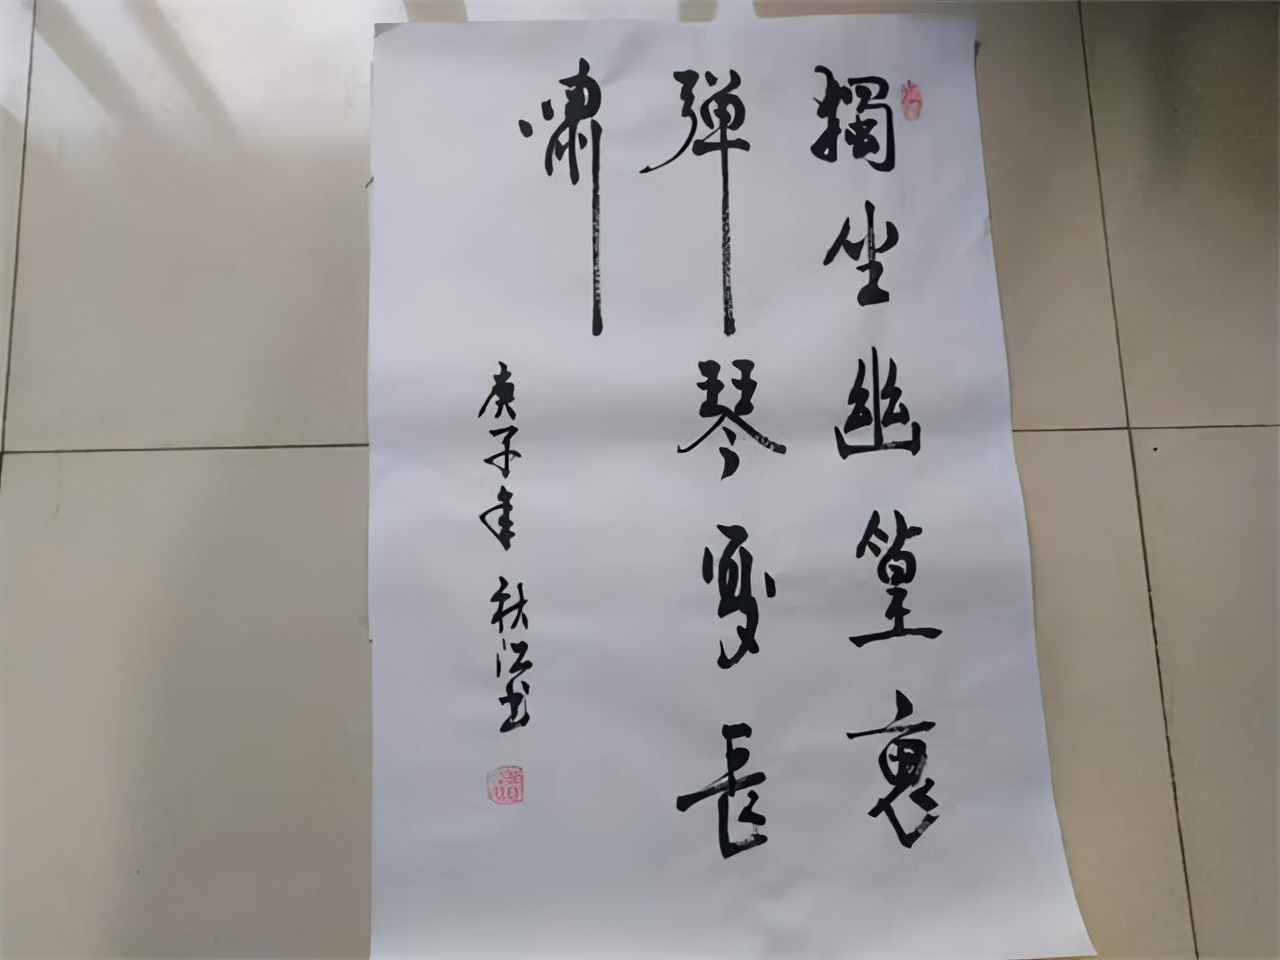 獨坐幽篁裏
弹琴復長
嘯
庚子年 秋江书